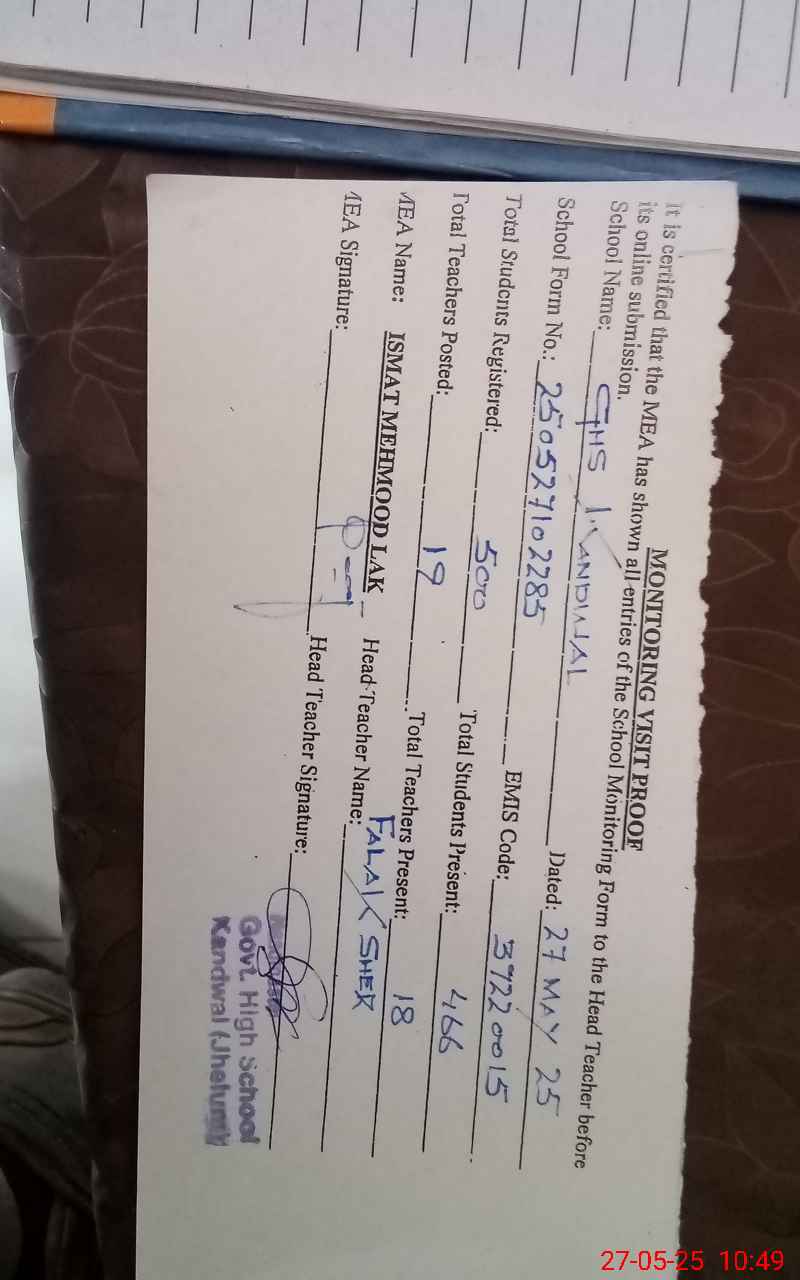 MONITORING VISIT PROOF
It is certified that the MEA has shown all entries of the School Monitoring Form to the Head Teacher before
its online submission.
School Name: GHS KANDWAL Dated: 27 MAY 25
School Form No.: 250527102285 EMIS Code: 37220015
Total Students Registered: 500 Total Students Present: 466
Total Teachers Posted: 19 Total Teachers Present: 18
MEA Name: ISMAT MEHMOOD LAK Head Teacher Name: FALAK SHER
MEA Signature: Head Teacher Signature:
Govt. High School
Kandwal (Jhelum)
27-05-25 10:49